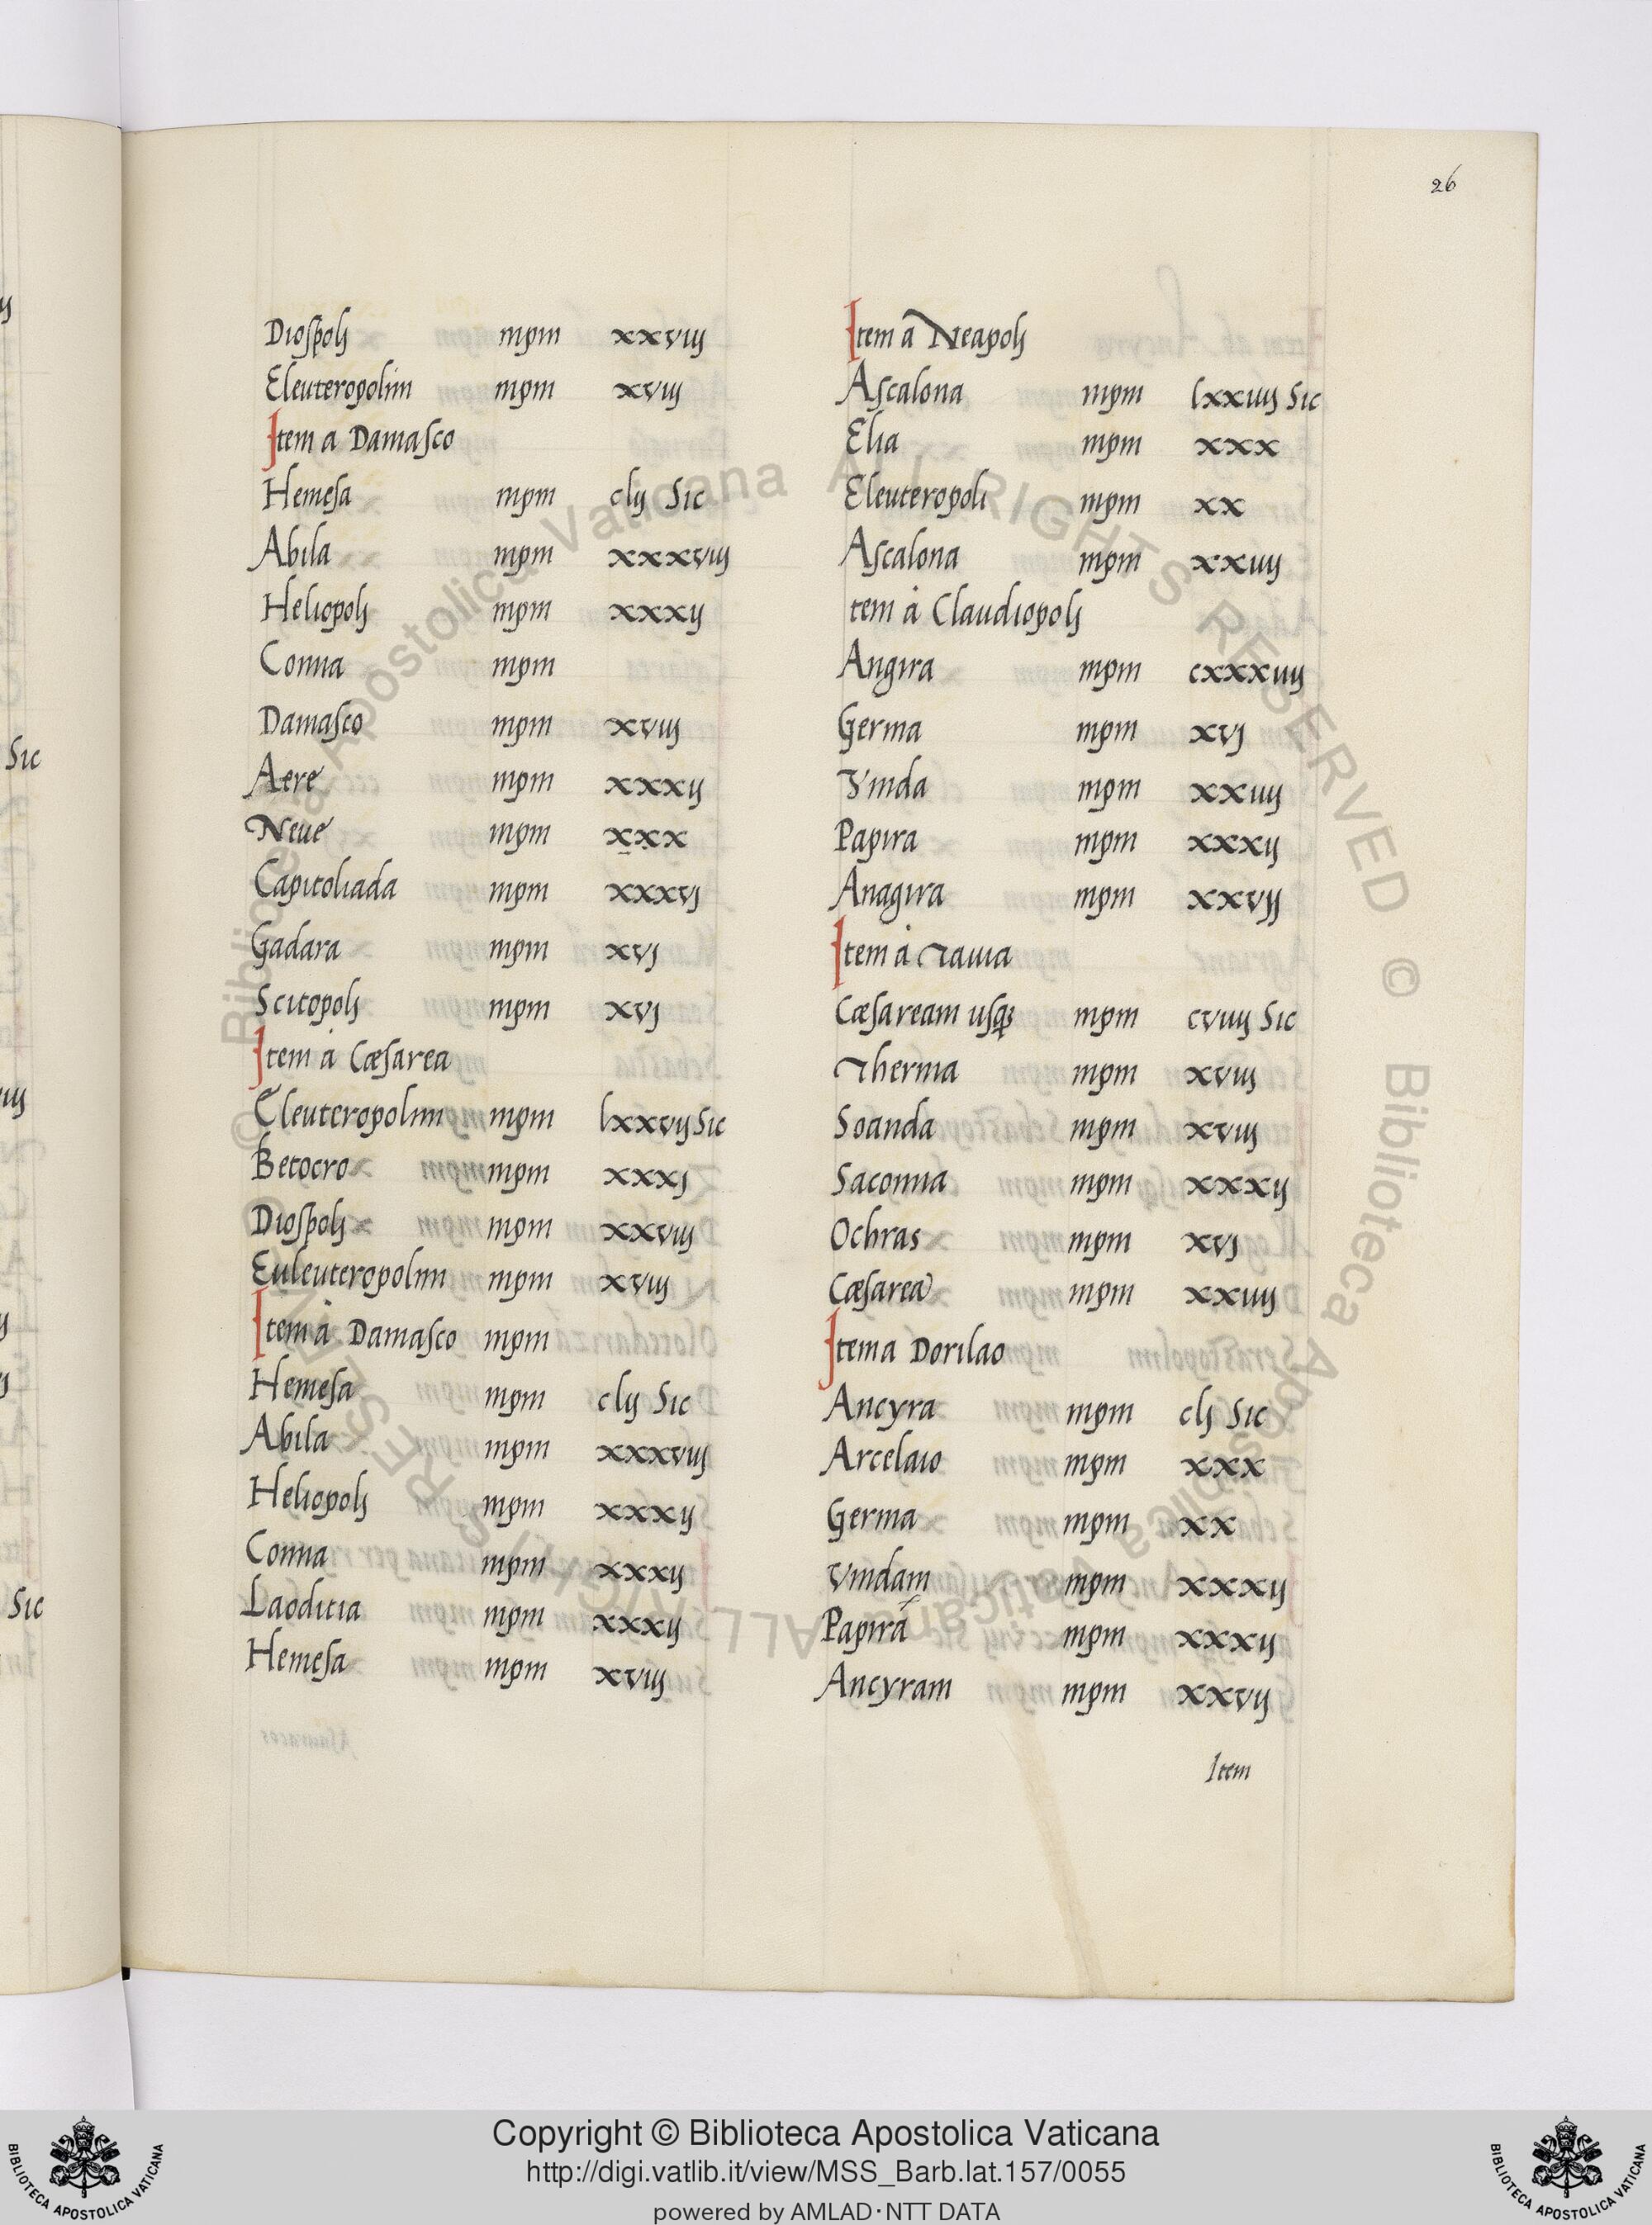 26
Diospolis mpm xxviij
Eleuteropolim mpm xviij
Item a Damasco
Hemesa mpm clij Sic
Abila mpm xxxviij
Heliopolis mpm xxxij
Conna mpm
Damasco mpm xviij
Aere mpm xxxij
Neue mpm xxx
Capitoliada mpm xxxvj
Gadara mpm xvj
Scitopolis mpm xvj
Item a Cæsarea
Eleuteropolim mpm lxxvij Sic
Betocro mpm xxxj
Diospolis mpm xxviij
Euleuteropolim mpm xviij
Item a Damasco mpm
Hemesa mpm clij Sic
Abila mpm xxxviij
Heliopolis mpm xxxij
Conna mpm xxxij
Laoditia mpm xxxij
Hemesa mpm xviij
Item a Neapolis
Ascalona mpm lxxiiij Sic
Elia mpm xxx
Eleuteropoli mpm xx
Ascalona mpm xxiiij
tem a Claudiopolis
Angira mpm cxxxiiij
Germa mpm xvj
Vinda mpm xxiiij
Papira mpm xxxij
Anagira mpm xxvij
Item a Tauia
Cæsaream usq; mpm cviiij Sic
Therma mpm xviij
Soanda mpm xviij
Saconna mpm xxxij
Ochras mpm xvj
Cæsarea mpm xxiiij
Item a Dorilao
Ancyra mpm clj Sic
Arcelaio mpm xxx
Germa mpm xx
Vindam mpm xxxij
Papira mpm xxxij
Ancyram mpm xxvij
Item
Sic
Sic
© Biblioteca Apostolica Vaticana ALL RIGHTS RESERVED © Biblioteca Apostolica Vaticana ALL RIGHTS RESERVED
Copyright © Biblioteca Apostolica Vaticana
http://digi.vatlib.it/view/MSS_Barb.lat.157/0055
powered by AMLAD·NTT DATA
BIBLIOTECA APOSTOLICA VATICANA
BIBLIOTECA APOSTOLICA VATICANA